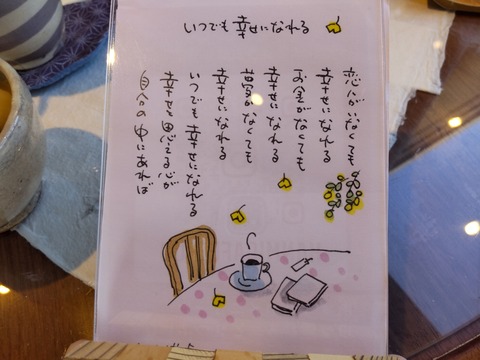 いつでも 幸せになれる
恋人がいなくても
幸せになれる
お金がなくても
幸せになれる
がなくても
幸せになれる
いつでも 幸せになれる
幸せと思える心が
自分の中にあれば